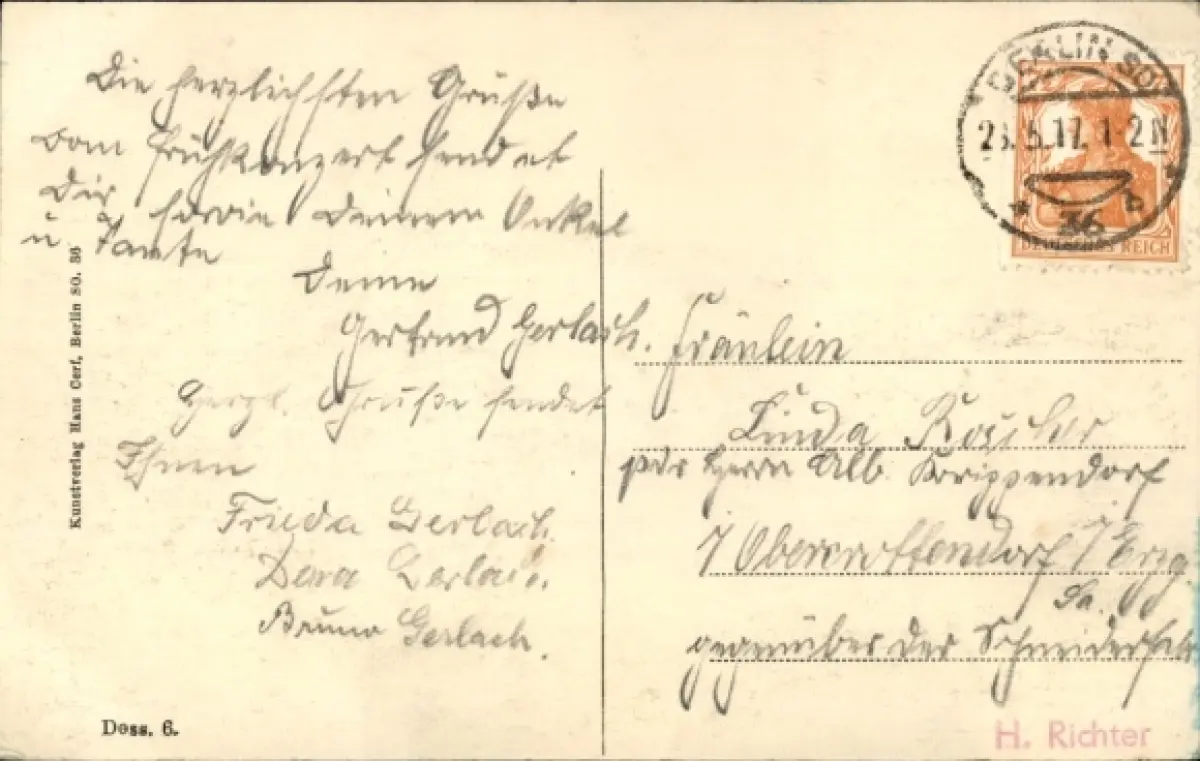 Die herzlichsten Grüße
vom Frühkonzert sendet
Dir sowie Deinem Onkel
u Tante
Deine
Gertrud Gerlach.
Herzl. Grüße sendet
Ihnen
Frieda Gerlach.
Dora Gerlach.
Bruno Gerlach.
Kunstverlag Hans Cerf, Berlin SO. 36
Dess. 6.
BERLIN SO
5.17. 1-2N
* 36 b *
DEUTSCHES REICH
Fräulein
Linda
Herrn Alb. Krippendorf
/ Erzg.
Sa.
gegenüber der
H. Richter